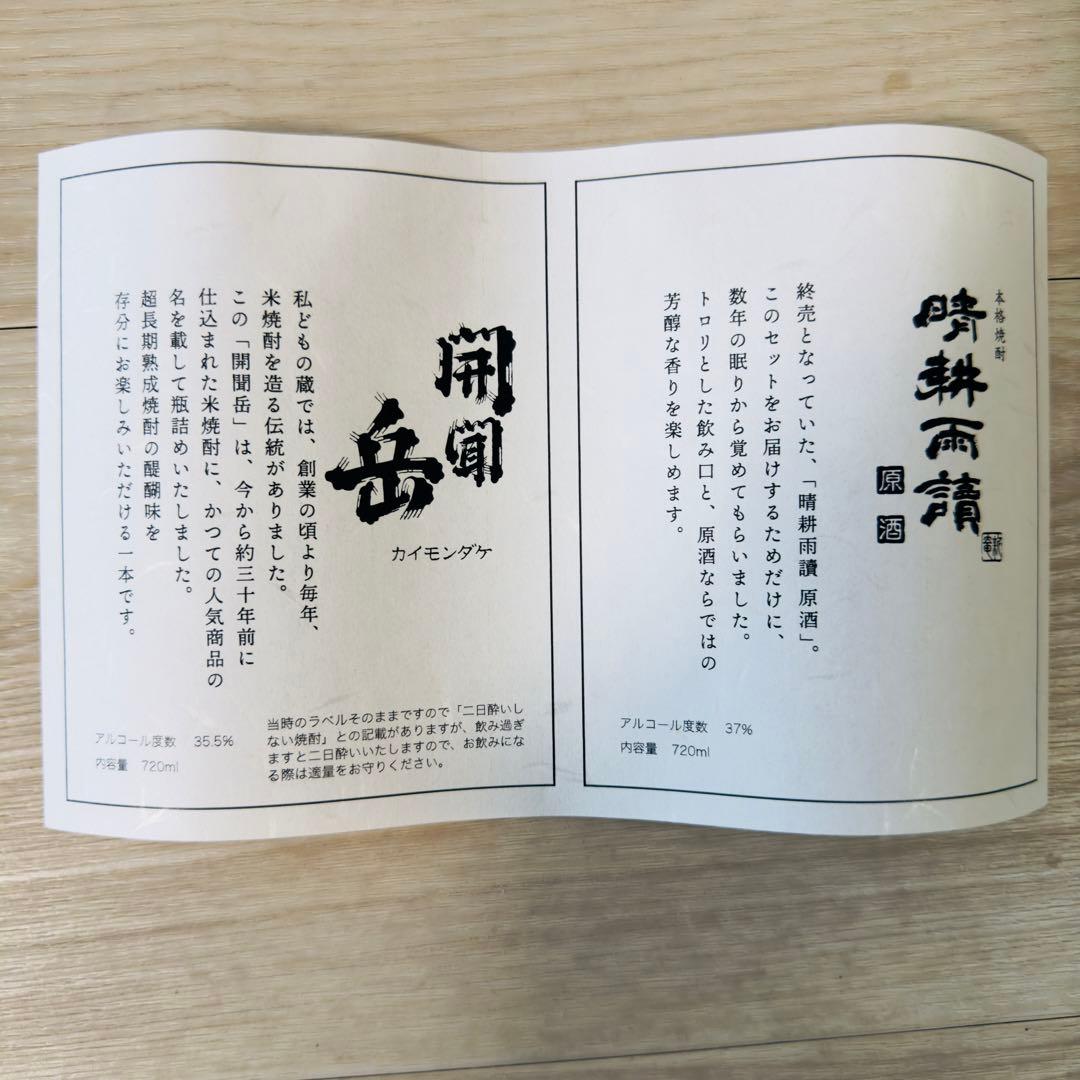 本格焼酎
晴耕雨讀
原酒
終売となっていた、「晴耕雨讀 原酒」。
このセットをお届けするためだけに、
数年の眠りから覚めてもらいました。
トロリとした飲み口と、原酒ならではの
芳醇な香りを楽しめます。
アルコール度数 37%
内容量 720ml
開聞
岳
カイモンダケ
私どもの蔵では、創業の頃より毎年、
米焼酎を造る伝統がありました。
この「開聞岳」は、今から約三十年前に
仕込まれた米焼酎に、かつての人気商品の
名を載して瓶詰めいたしました。
超長期熟成焼酎の醍醐味を
存分にお楽しみいただける一本です。
当時のラベルそのままですので「二日酔いし
ない焼酎」との記載がありますが、飲み過ぎ
ますと二日酔いいたしますので、お飲みにな
る際は適量をお守りください。
アルコール度数 35.5%
内容量 720ml